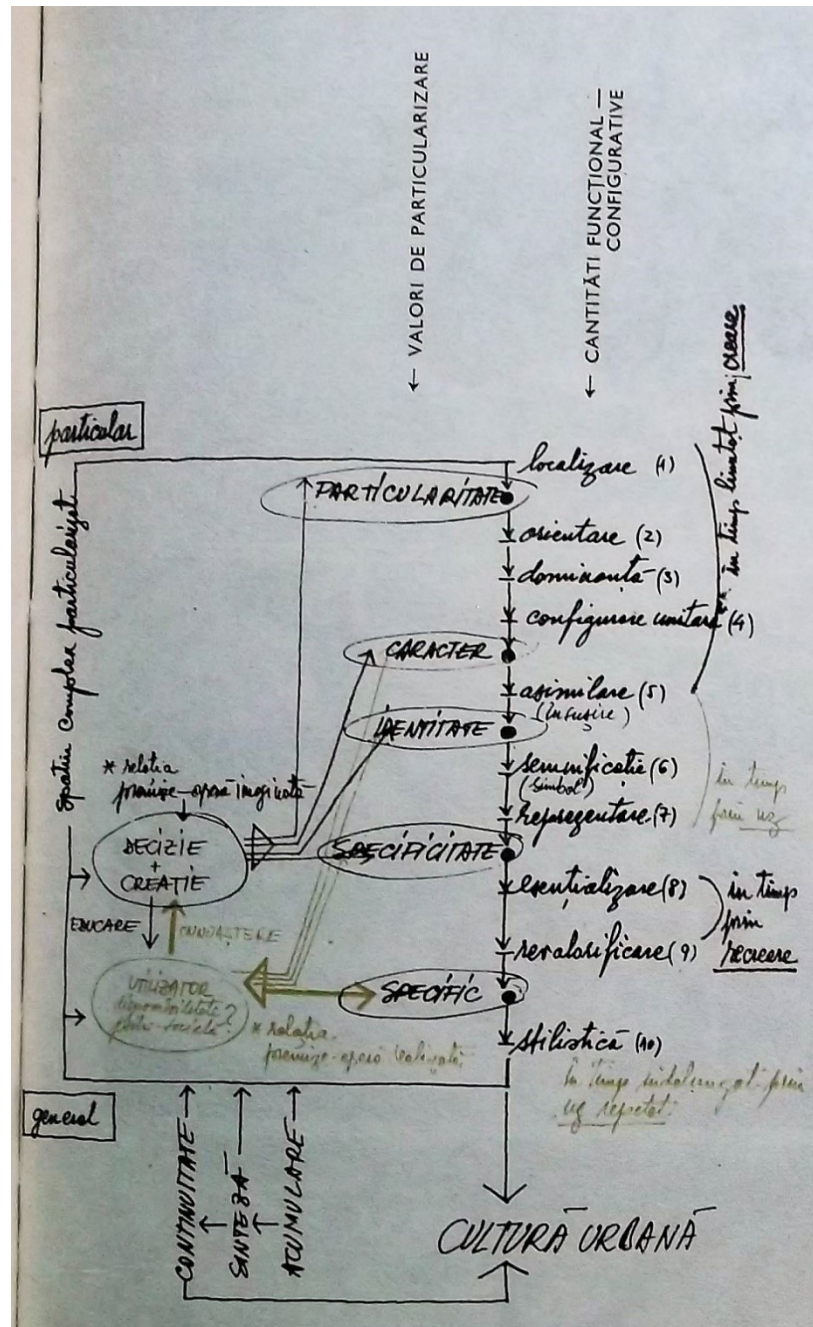 ← VALORI DE PARTICULARIZARE
← CANTITĂȚI FUNCȚIONAL —
CONFIGURATIVE
particular
Spațiu complex particularizat
PARTICULARITATE
localizare (1)
orientare (2)
dominantă (3)
configurare unitară (4)
** în timp limitat prin creare
CARACTER
asimilare (5)
(însușire)
IDENTITATE
semnificație (6)
(simbol)
reprezentare (7)
în timp
prin uz
* relația
premize-operă imaginată
DECIZIE
+
CREAȚIE
SPECIFICITATE
esențializare (8)
revalorificare (9)
în timp
prin
recreere
EDUCARE
CUNOAȘTERE
UTILIZATOR
disponibilitate?
SPECIFIC
* relația
premize-operă realizată
stilistică (10)
în timp îndelungat prin
uz repetat
general
CONTINUITATE
SINTEZĂ
ACUMULARE
CULTURĂ URBANĂ